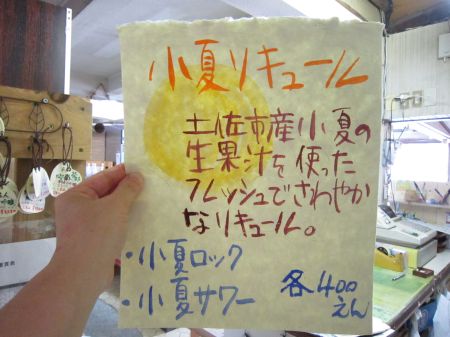 小夏リキュール
土佐市産小夏の
生果汁を使った
フレッシュでさわやか
なリキュール。
・小夏ロック
・小夏サワー
各400
えん